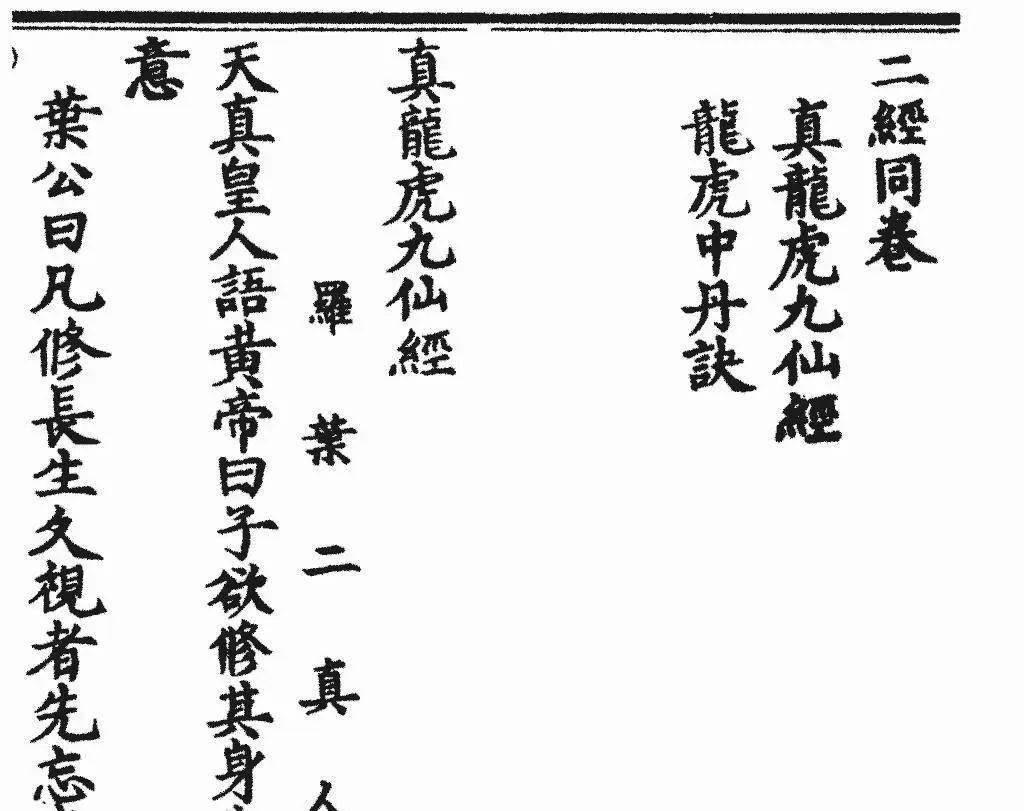 二經同卷
真龍虎九仙經
龍虎中丹訣
真龍虎九仙經
羅葉二真人
天真皇人語黃帝曰子欲修其身
意
葉公曰凡修長生久視者先忘